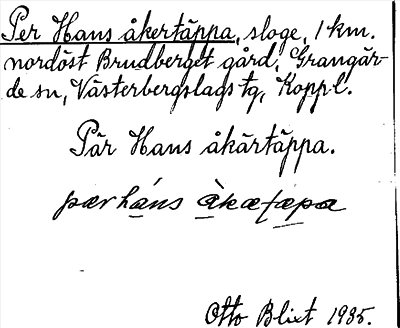 Per Hans åkertäppa, sloge, 1 km.
nordöst Brudberget gård, Grangär-
de sn, Västerbergslags tg, Koppl.
Pär Hans åkärtäppa.
pærháns àkæṭæpa
Otto Blixt 1935.